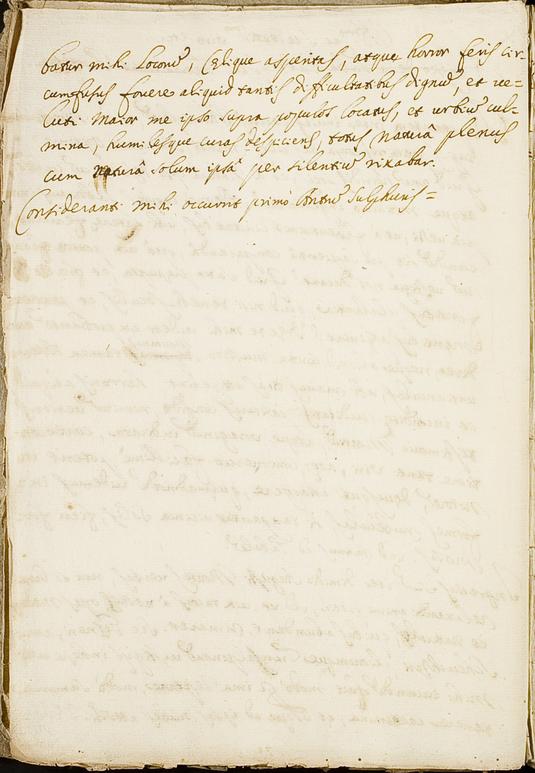 batur mihi Locorū, Cælique asperitas, atque horror feris cir-
cumfusus fovere aliquid tantis difficultatibus dignū, et ve-
luti maior me ipso supra populos locatus, et urbiū cul-
mina, humilesque curas despiciens, totus naturâ plenus
cum naturâ solum ipsâ per silentiū rixabar.
Consideranti mihi occurrit primò Antrū Sulphuris=